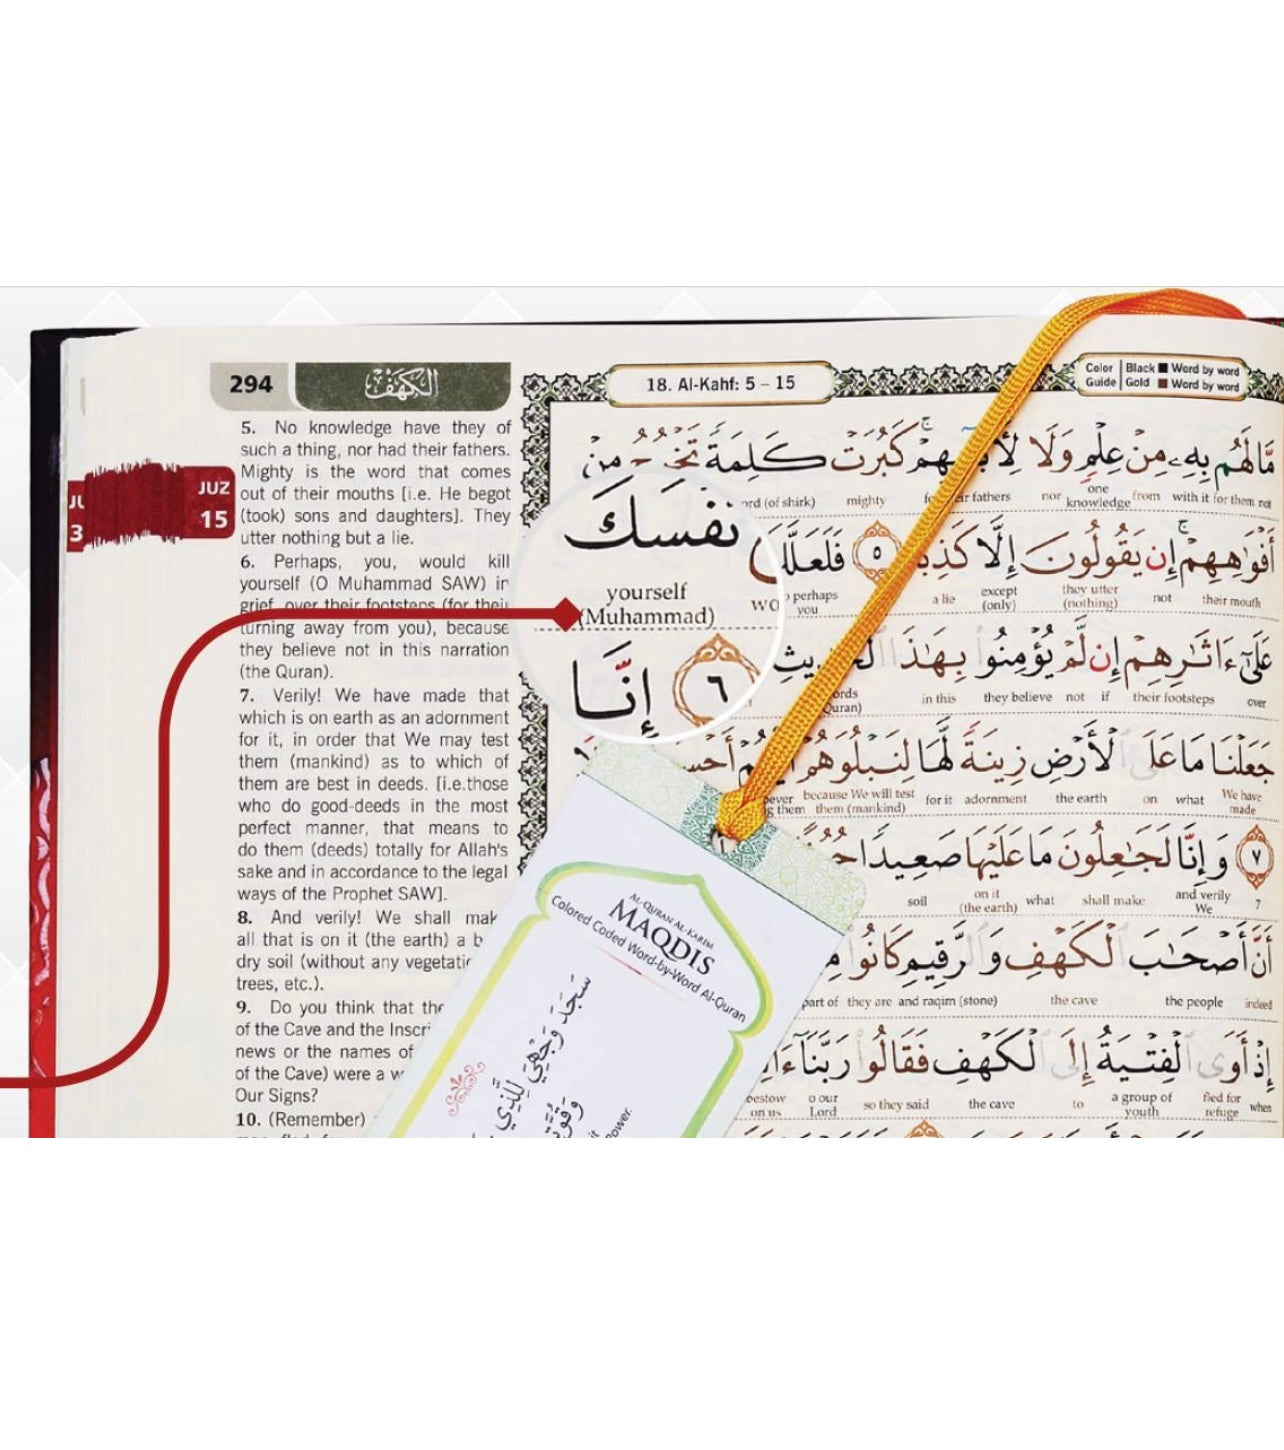 294
الكهف
5. No knowledge have they of
such a thing, nor had their fathers.
Mighty is the word that comes
out of their mouths [i.e. He begot
(took) sons and daughters]. They
utter nothing but a lie.
6. Perhaps, you, would kill
yourself (O Muhammad SAW) in
grief, over their footsteps (for their
turning away from you), because
they believe not in this narration
(the Quran).
7. Verily! We have made that
which is on earth as an adornment
for it, in order that We may test
them (mankind) as to which of
them are best in deeds. [i.e.those
who do good-deeds in the most
perfect manner, that means to
do them (deeds) totally for Allah's
sake and in accordance to the legal
ways of the Prophet SAW].
8. And verily! We shall mak
all that is on it (the earth) a b
dry soil (without any vegetatic
trees, etc.).
9. Do you think that the
of the Cave and the Inscri
news or the names of
of the Cave) were a w
Our Signs?
10. (Remember)
JUZ
15
3
18. Al-Kahf: 5 – 15
Color Guide
Black Word by word
Gold Word by word
مَّا لَهُم بِهِۦ مِنْ عِلْمٍ وَلَا كَبُرَتْ كَلِمَةً مِنْ
ord (of shirk) mighty fathers nor one knowledge from with it for them not
أَفْوَٰهِهِمْ ۚ إِن يَقُولُونَ إِلَّا ٥ فَلَعَلَّكَ
perhaps you a lie except (only) they utter (nothing) not their mouth
نَفْسَكَ
yourself
(Muhammad)
عَلَىٰٓ ءَاثَٰرِهِمْ إِن لَّمْ يُؤْمِنُوا۟ بِهَٰذَا
in this they believe not if their footsteps over
٦ إِنَّا
جَعَلْنَا مَا عَلَى ٱلْأَرْضِ زِينَةً لَّهَا لِنَبْلُوَهُمْ
because We will test them (mankind) for it adornment the earth on what We have made
٧ وَإِنَّا لَجَٰعِلُونَ مَا عَلَيْهَا صَعِيدًا
soil on it (the earth) what shall make and verily We 7
أَنَّ أَصْحَٰبَ ٱلْكَهْفِ وَٱلرَّقِيمِ كَانُوا۟
part of they are and raqim (stone) the cave the people indeed
إِذْ أَوَى ٱلْفِتْيَةُ إِلَى ٱلْكَهْفِ فَقَالُوا۟ رَبَّنَآ
bestow on us o our Lord so they said the cave to a group of youth fled for refuge when
AL-QURAN AL-KARIM
MAQDIS
Colored Coded Word-by-Word Al-Quran
سَجَدَ وَجْهِيَ لِلَّذِي
power.